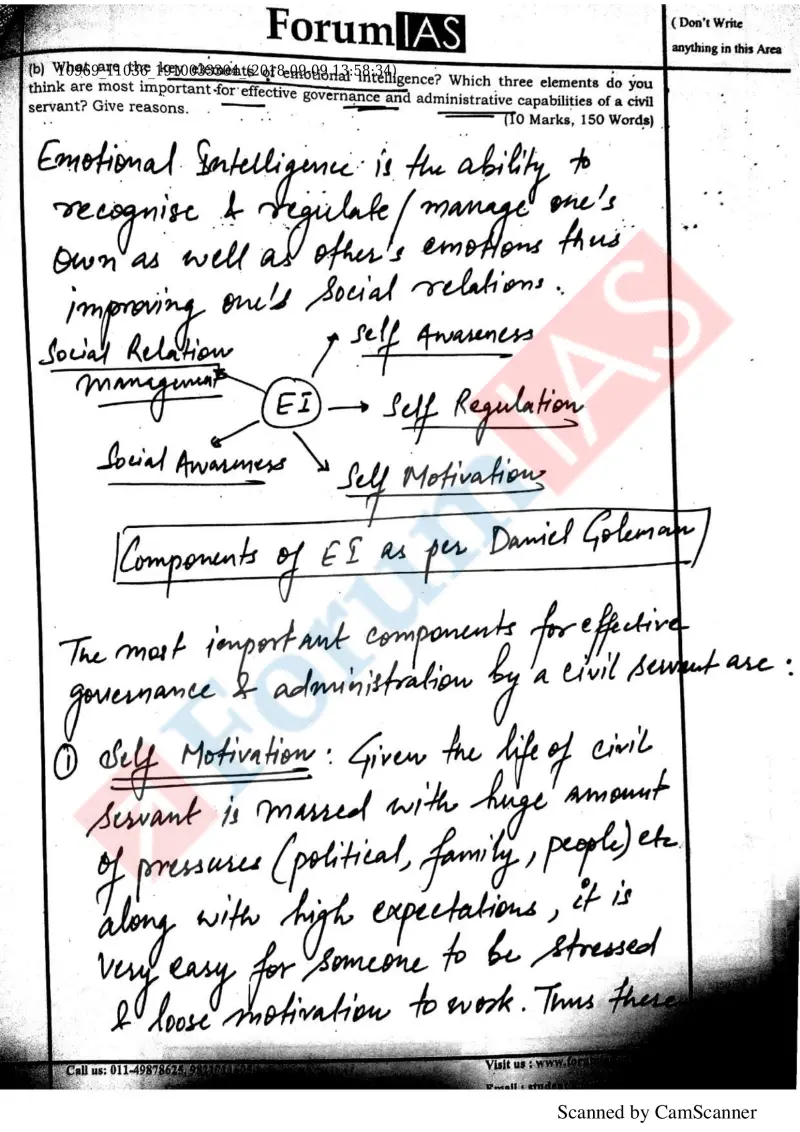 Forum IAS
( Don't Write
anything in this Area
10969_11036_1910033304_(2018-09-09 13:58:34)
(b) What are the key elements of emotional intelligence? Which three elements do you
think are most important for effective governance and administrative capabilities of a civil
servant? Give reasons.
(10 Marks, 150 Words)
Emotional Intelligence is the ability to
recognise & regulate / manage one's
own as well as other's emotions thus
improving one's social relations.
Social Relation
Management
Self Awareness
EI
Self Regulation
Social Awareness
Self Motivation
Components of EI as per Daniel Goleman
The most important components for effective
governance & administration by a civil servant are :
① Self Motivation : Given the life of civil
servant is marred with huge amount
of pressures (political, family, people) etc
along with high expectations, it is
very easy for someone to be stressed
& loose motivation to work. Thus these
ForumIAS
Call us: 011-49878625,
Visit us : www.
Scanned by CamScanner